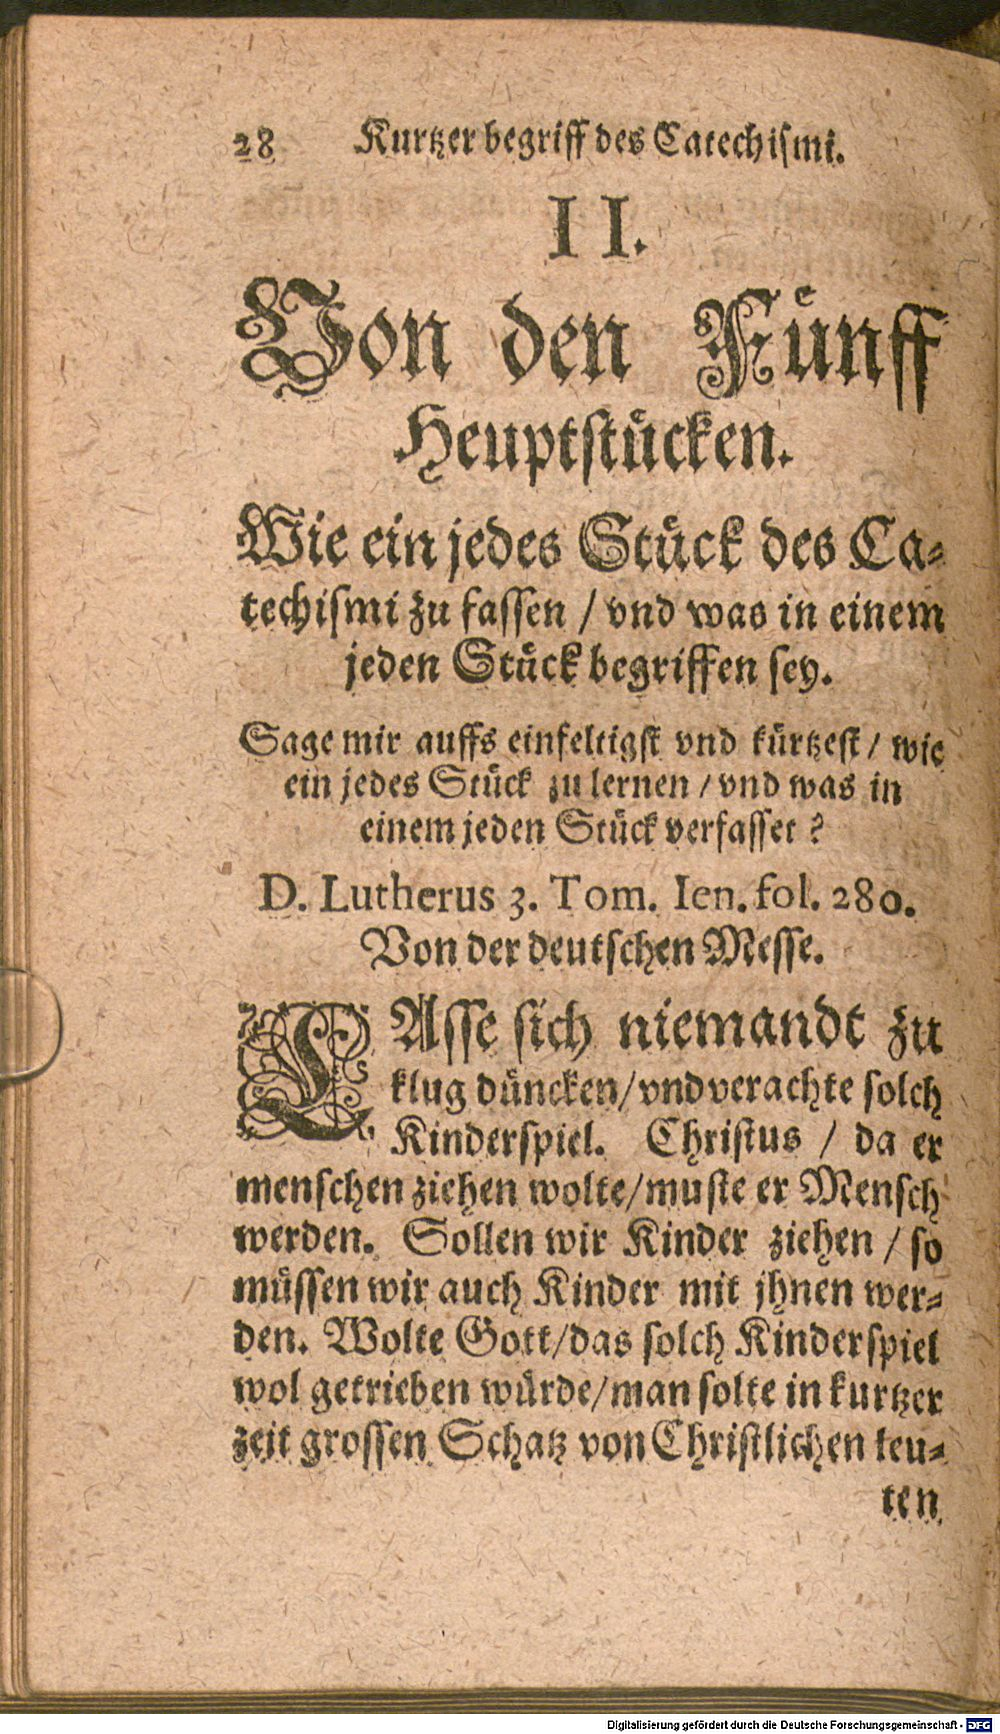 28 Kurtzer begriff des Catechismi.
II.
Von den Fünff
Heuptstücken.
Wie ein jedes Stück des Ca-
techismi zu fassen / vnd was in einem
jeden Stück begriffen sey.
Sage mir auffs einfeltigst vnd kürtzest / wie
ein jedes Stück zu lernen / vnd was in
einem jeden Stück verfasset ?
D. Lutherus 3. Tom. Ien. fol. 280.
Von der deutschen Messe.
LAsse sich niemandt zu
klug düncken / vnd verachte solch
Kinderspiel. Christus / da er
menschen ziehen wolte / muste er Mensch
werden. Sollen wir Kinder ziehen / so
müssen wir auch Kinder mit jhnen wer-
den. Wolte Gott / das solch Kinderspiel
wol getrieben würde / man solte in kurtzer
zeit grossen Schatz von Christlichen leu-
ten
Digitalisierung gefördert durch die Deutsche Forschungsgemeinschaft - DFG